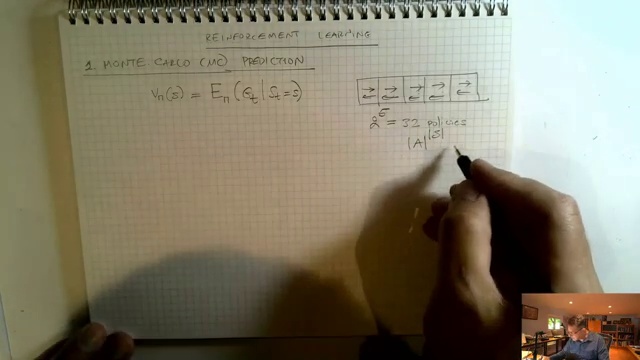 REINFORCEMENT LEARNING
1. MONTE CARLO (MC) PREDICTION
Vπ(s) = Eπ(Gt | St = s)
2^5 = 32 policies
|A|^|S|